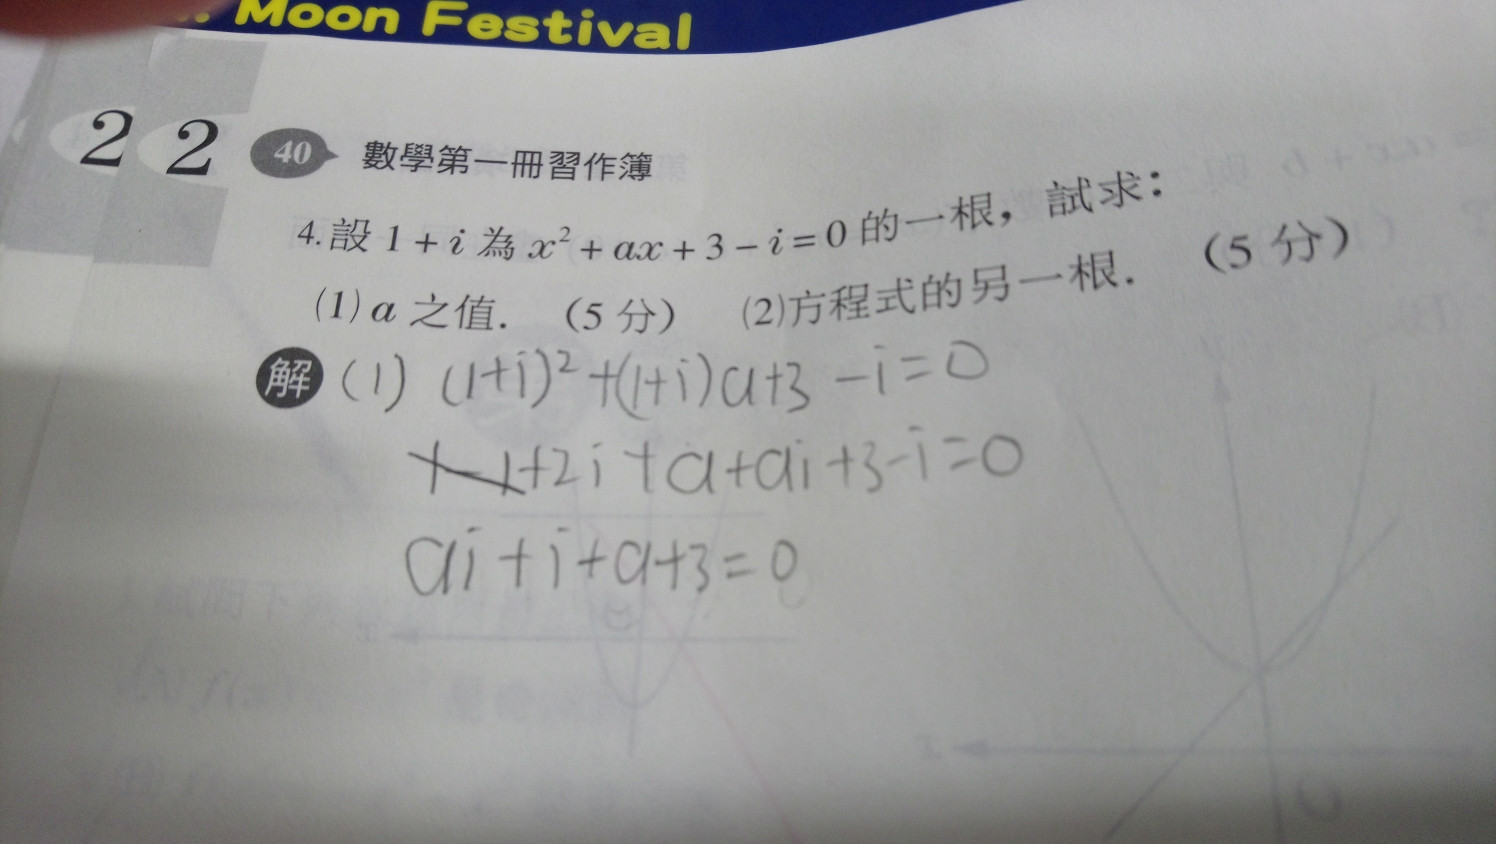 Moon Festival
2 2 40 數學第一冊習作簿
4.設 1 + i 為 x² + ax + 3 − i = 0 的一根，試求：
(1) a 之值．（5 分） (2)方程式的另一根．（5 分）
解 (1) (1+i)²+(1+i)a+3-i=0
+2i+a+ai+3-i=0
ai+i+a+3=0